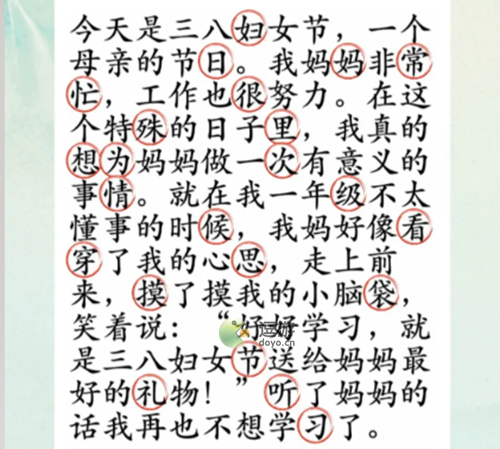 今天是三八妇女节，一个
母亲的节日。我妈妈非常
忙，工作也很努力。在这
个特殊的日子里，我真的
想为妈妈做一次有意义的
事情。就在我一年级不太
懂事的时候，我妈好像看
穿了我的心思，走上前
来，摸了摸我的小脑袋，
笑着说：“好好学习，就
是三八妇女节送给妈妈最
好的礼物！”听了妈妈的
话我再也不想学习了。
doyo.cn